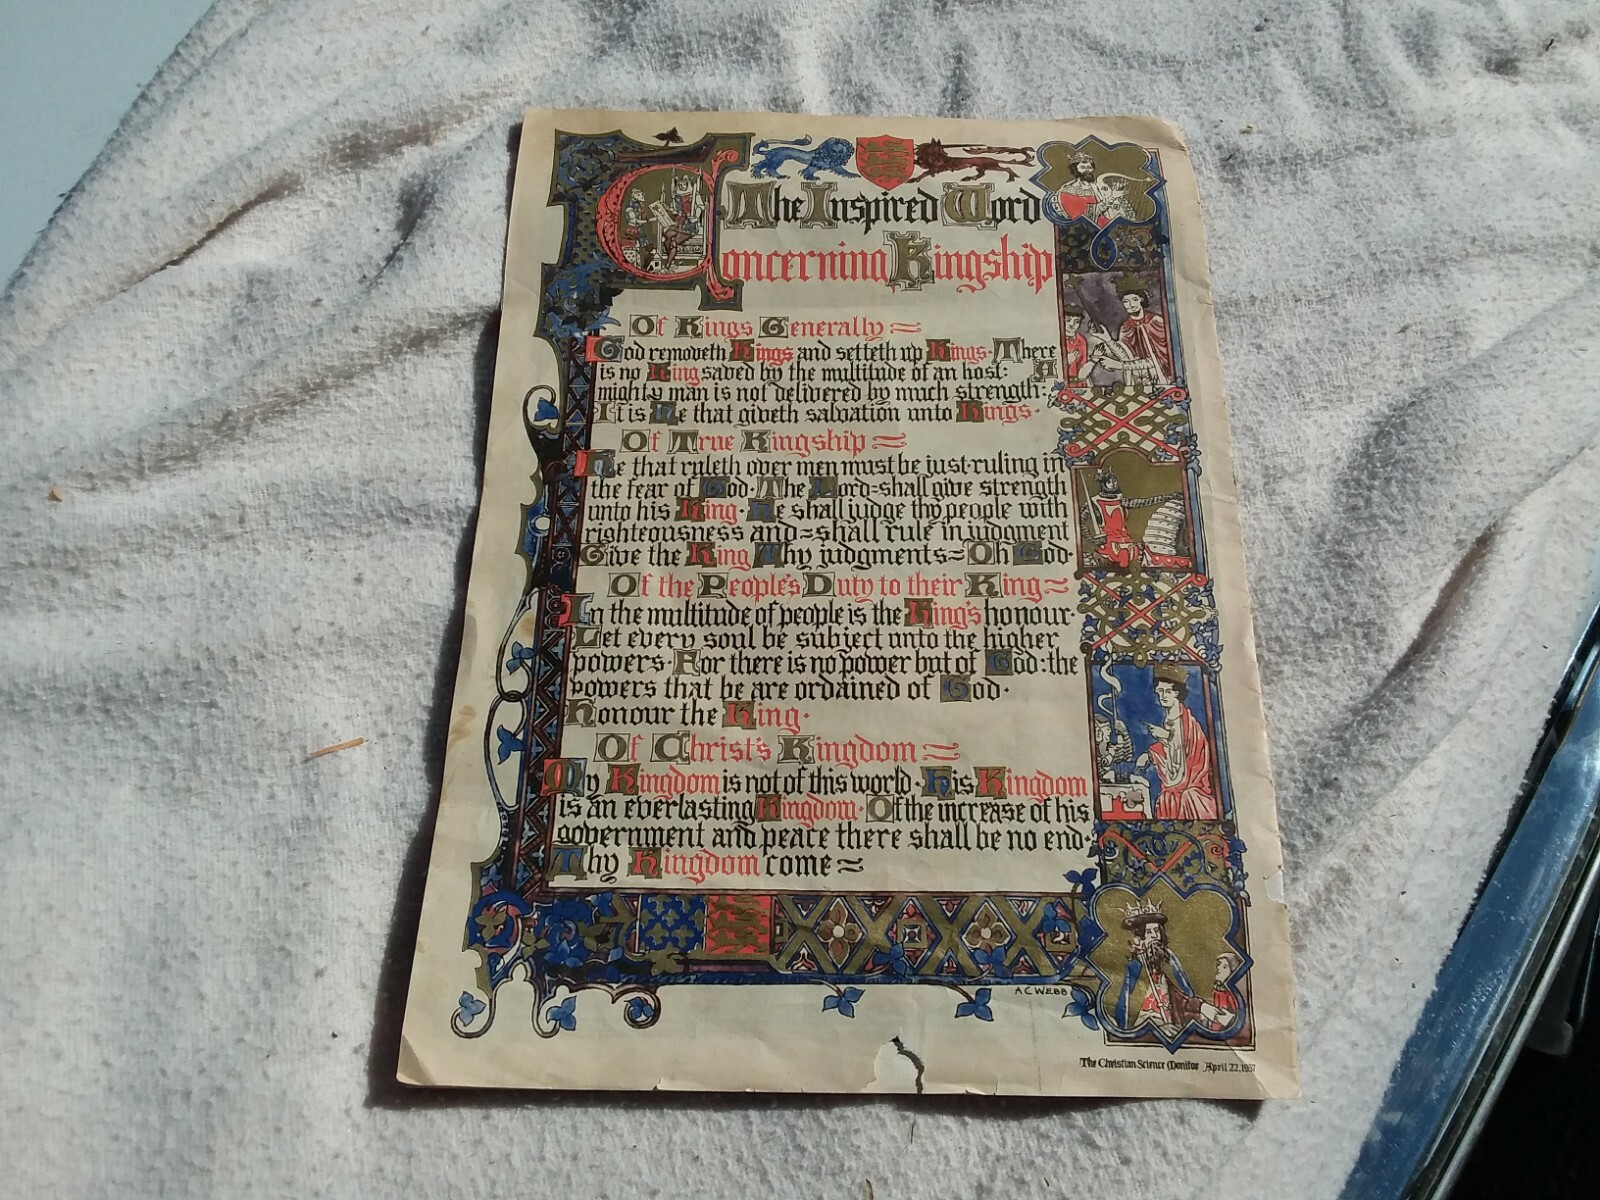 The Inspired Word
Concerning Kingship
Of Kings Generally
God removeth Kings and setteth up Kings· There
is no King saved by the multitude of an host: A
mighty man is not delivered by much strength:
It is He that giveth salvation unto Kings·
Of True Kingship
He that ruleth over men must be just·ruling in
the fear of God· The Lord=shall give strength
unto his King· He shall judge thy people with
righteousness and=shall rule in judgment
Give the King Thy judgments=Oh God·
Of the People's Duty to their King
In the multitude of people is the King's honour·
Let every soul be subject unto the higher
powers· For there is no power but of God: the
powers that be are ordained of God·
Honour the King·
Of Christ's Kingdom
My Kingdom is not of this world· His Kingdom
is an everlasting Kingdom· Of the increase of his
government and peace there shall be no end·
Thy Kingdom come
A C WEBB
The Christian Science Monitor April 22, 1937